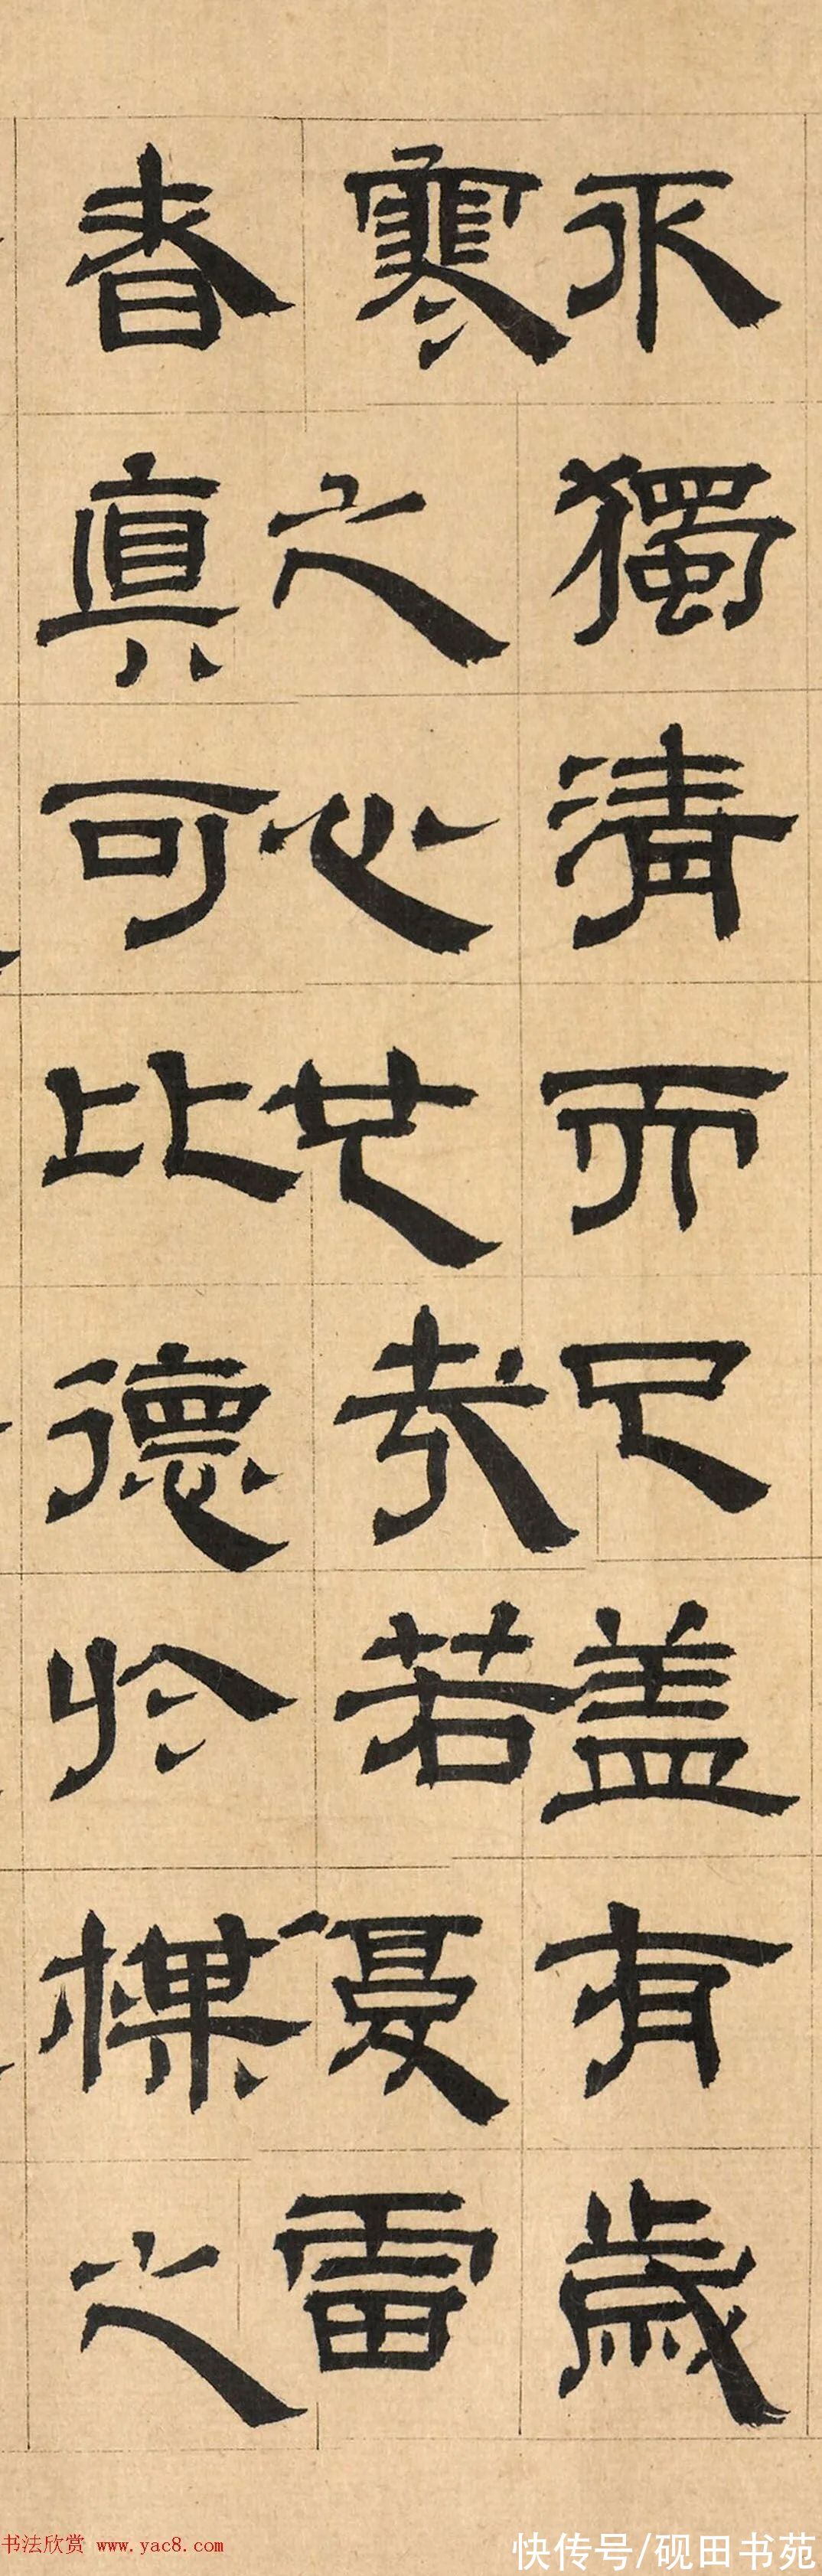 不獨清而已蓋有歲
寒之心廿八載若夏雷
者真可比德於樸之
书法欣赏 www.yac8.com
快传号/砚田书苑